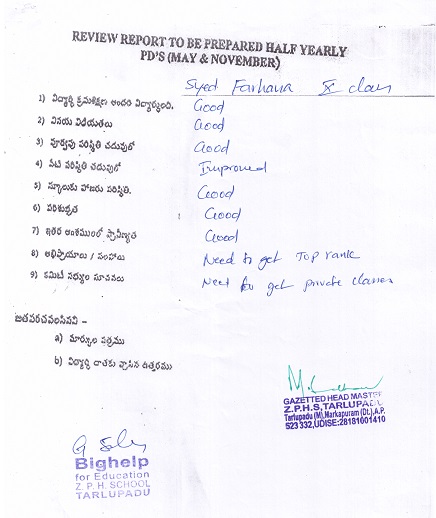 REVIEW REPORT TO BE PREPARED HALF YEARLY
PD'S (MAY & NOVEMBER)
Syed Farhana X class
1) విద్యార్థి క్రమశిక్షణ అందరి విద్యార్థులది. Good
2) వినయ విధేయతలు Good
3) పూర్వపు పరిస్థితి చదువులో Good
4) నేటి పరిస్థితి చదువులో Improved
5) స్కూలుకు హాజరు పరిస్థితి. Good
6) పరిశుభ్రత Good
7) ఇతర అంశములలో ప్రావీణ్యత Good
8) అభిప్రాయాలు / సలహాలు Need to get Top rank
9) కమిటీ సభ్యుల సూచనలు Need to get private classes
జతపరచవలసినవి -
a) మార్కుల పత్రము
b) విద్యార్థి దాతకు వ్రాసిన ఉత్తరము
GAZETTED HEAD MASTER
Z.P.H.S, TARLUPADU
Tarlupadu (M), Markapuram (Dt.), A.P.
523 332, UDISE:28181001410
Bighelp
for Education
Z. P. H. SCHOOL
TARLUPADU